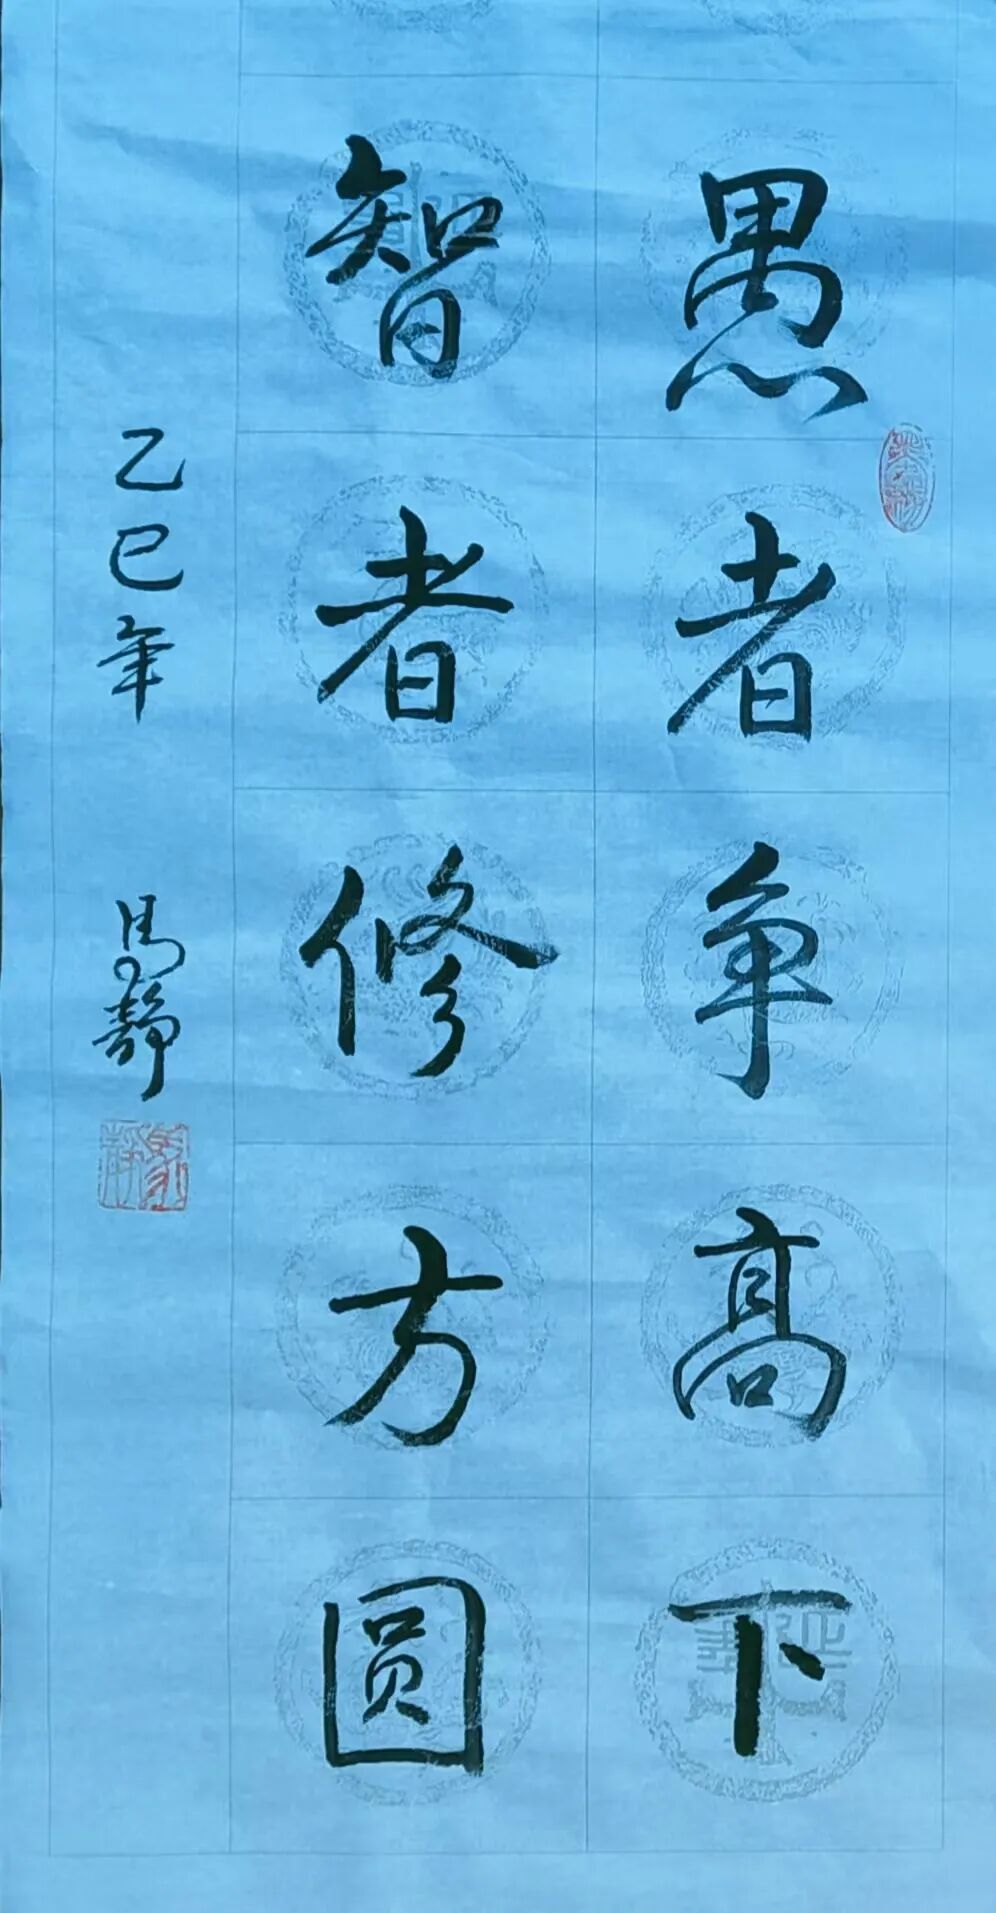 愚者争高下
智者修方圆
乙巳年 馬静